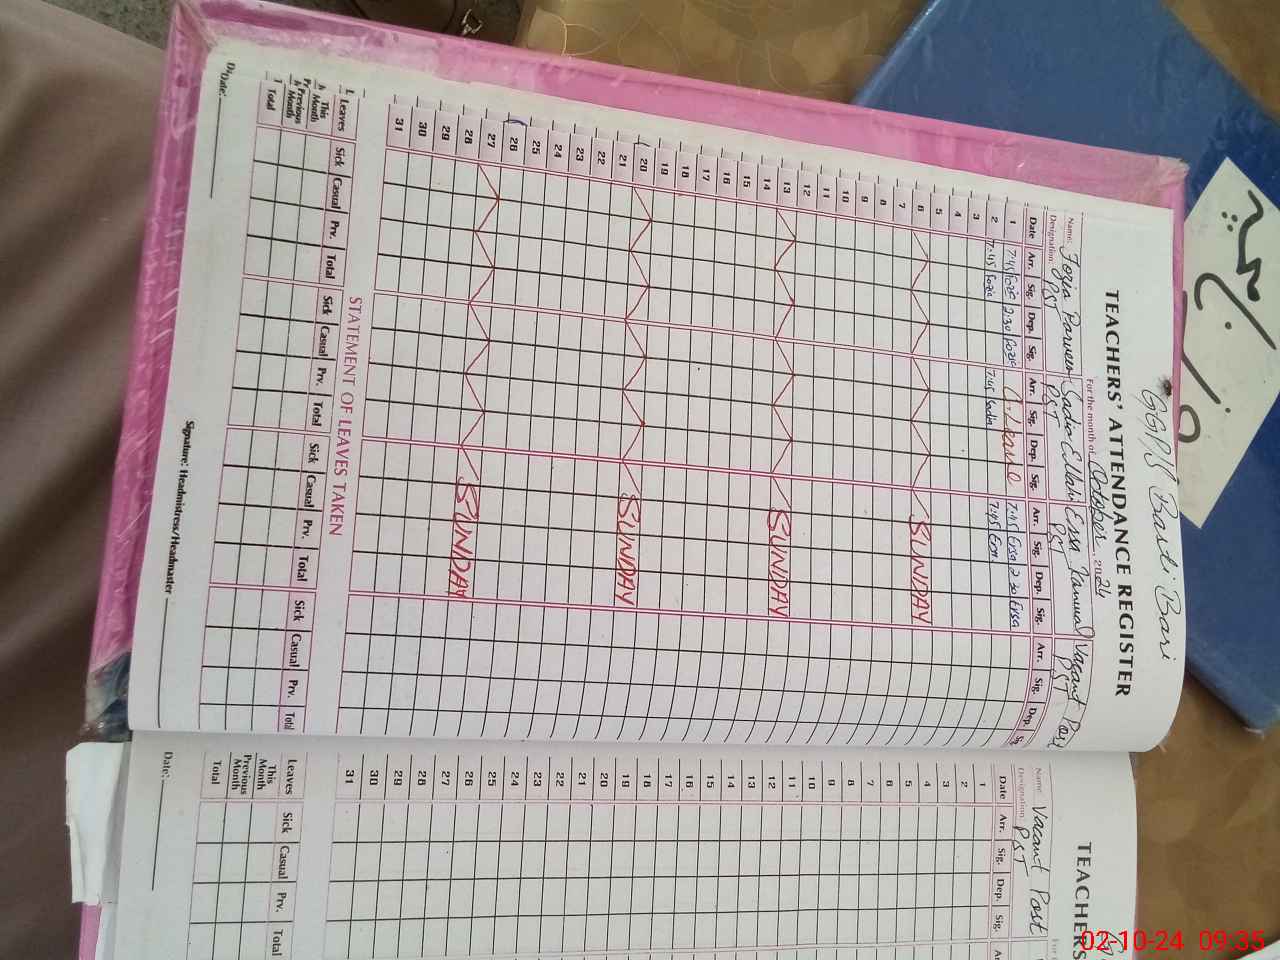 GGPS Basti Bari
TEACHERS' ATTENDANCE REGISTER
For the month of October, 2024
Name: Fozia Parveen Sadia Ellahi Vacant Post
Designation: PST PST PST PST
Date Arr. Sig. Dep. Sig. Arr. Sig. Dep. Sig. Arr. Sig. Dep. Sig. Arr. Sig. Dep.
1 7:45 Fozia 2:30 Fozia C-Leave 7:45 Ersa 2:30 Ersa
2 7:45 Fozia 7:45 Sadia 7:45 Ersa
3
4
5
6 SUNDAY
7
8
9
10
11
12
13 SUNDAY
14
15
16
17
18
19
20 SUNDAY
21
22
23
24
25
26
27 SUNDAY
28
29
30
31
STATEMENT OF LEAVES TAKEN
Leaves Sick Casual Prv. Total Sick Casual Prv. Total Sick Casual Prv. Total Sick Casual Prv. Total
This Month
Previous Month
Total
Date: Signature: Headmistress/Headmaster
TEACHERS
Name: Vacant Post
Designation: PST
Date Arr. Sig. Dep. Sig.
1
2
3
4
5
6
7
8
9
10
11
12
13
14
15
16
17
18
19
20
21
22
23
24
25
26
27
28
29
30
31
Leaves Sick Casual Prv. Total
This Month
Previous Month
Total
Date:
02-10-24 09:35